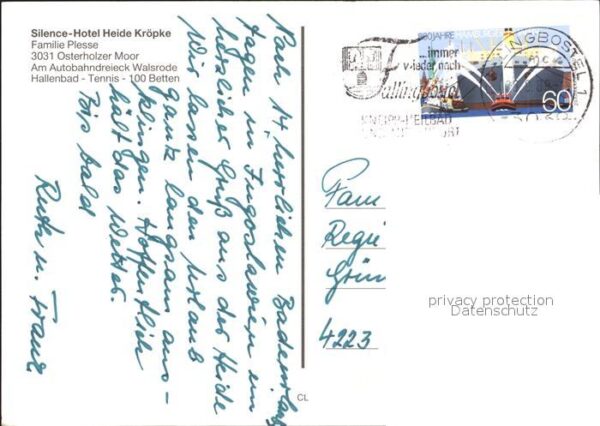 Silence-Hotel Heide Kröpke
Familie Plesse
3031 Osterholzer Moor
Am Autobahndreieck Walsrode
Hallenbad - Tennis - 100 Betten
Nach 14 herrlichen Badeurlaubs
tagen in Jugoslawien ein
herzlicher Gruß aus der Heide
Wir lassen den Urlaub
ganz langsam aus-
klingen. Hoffentlich
hält das Wetter.
Bis bald
Ruth u. Franz
800 JAHRE
HAMBURGER
60
...immer
wieder nach
Fallingbostel
KNEIPP-HEILBAD
FALLINGBOSTEL 1
Fam
Regi
Grün
4223
privacy protection
Datenschutz
CL